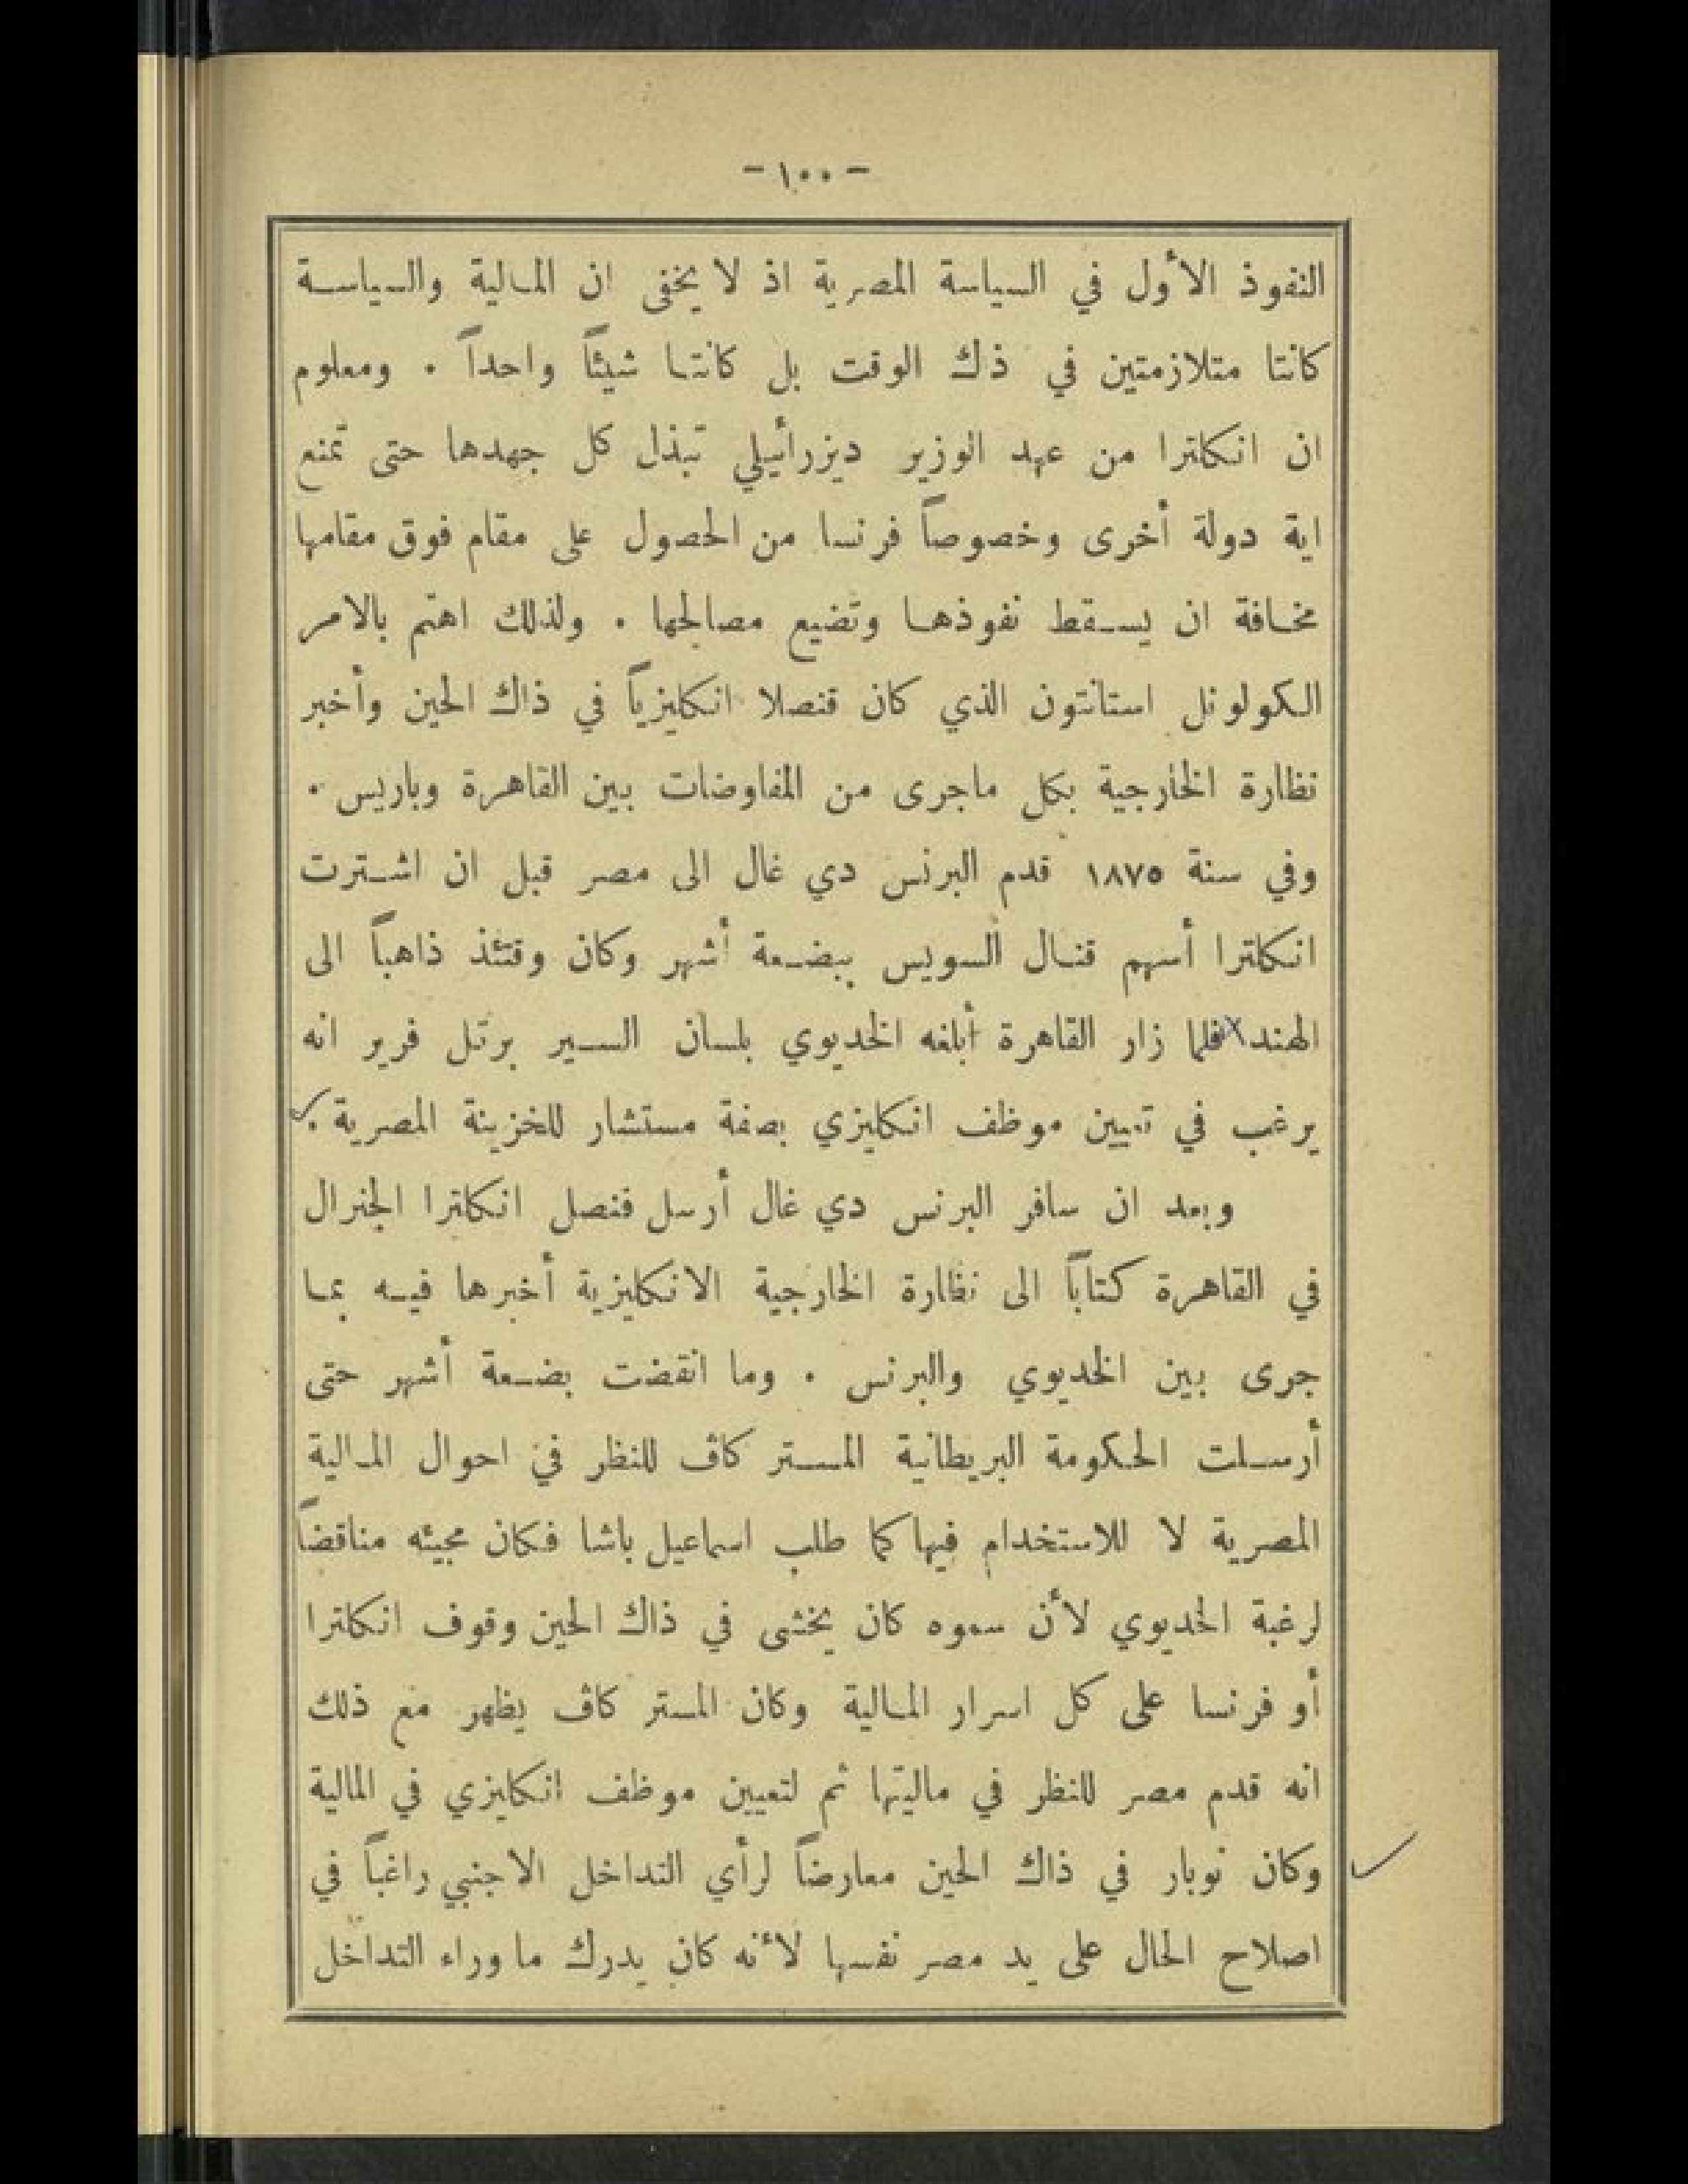 - ١٠٠ -
النفوذ الأول في السياسة المصرية اذ لا يخفى ان المالية والسياسة
كانتا متلازمتين في ذك الوقت بل كانتا شيئاً واحداً . ومعلوم
ان انكلترا من عهد الوزير ديزرائيلي تبذل كل جهدها حتى تمنع
اية دولة أخرى وخصوصاً فرنسا من الحصول على مقام فوق مقامها
مخافة ان يسقط نفوذها وتضيع مصالحها . ولذلك اهتم بالامر
الكولونل استانتون الذي كان قنصلا انكليزياً في ذاك الحين وأخبر
نظارة الخارجية بكل ماجرى من المفاوضات بين القاهرة وباريس .
وفي سنة ١٨٧٥ قدم البرنس دي غال الى مصر قبل ان اشترت
انكلترا أسهم قنال السويس ببضعة أشهر وكان وقتئذ ذاهباً الى
الهند فلما زار القاهرة أبلغه الخديوي بلسان السير برتل فرير انه
يرغب في تعيين موظف انكليزي بصفة مستشار للخزينة المصرية .
وبعد ان سافر البرنس دي غال أرسل قنصل انكلترا الجنرال
في القاهرة كتاباً الى نظارة الخارجية الانكليزية أخبرها فيه بما
جرى بين الخديوي والبرنس . وما انقضت بضعة أشهر حتى
أرسلت الحكومة البريطانية المستر كاف للنظر في احوال المالية
المصرية لا للاستخدام فيها كما طلب اسماعيل باشا فكان مجيئه مناقضاً
لرغبة الخديوي لأن سموه كان يخشى في ذاك الحين وقوف انكلترا
أو فرنسا على كل اسرار المالية وكان المستر كاف يظهر مع ذلك
انه قدم مصر للنظر في ماليتها ثم لتعيين موظف انكليزي في المالية
وكان نوبار في ذاك الحين معارضاً لرأي التداخل الاجنبي راغباً في
اصلاح الحال على يد مصر نفسها لأنه كان يدرك ما وراء التداخل